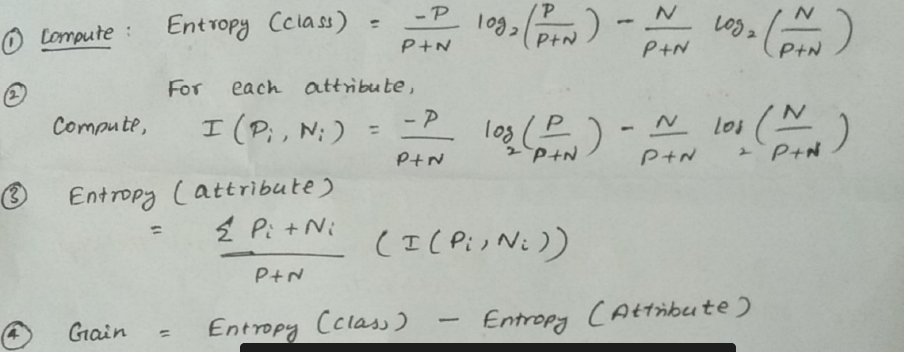 ① Compute : Entropy (class) = -P/P+N log₂(P/P+N) - N/P+N log₂(N/P+N)
② For each attribute,
Compute, I(Pi, Ni) = -P/P+N log₂(P/P+N) - N/P+N los₂(N/P+N)
③ Entropy (attribute)
= Σ Pi + Ni/P+N (I(Pi, Ni))
④ Gain = Entropy (class) - Entropy (Attribute)